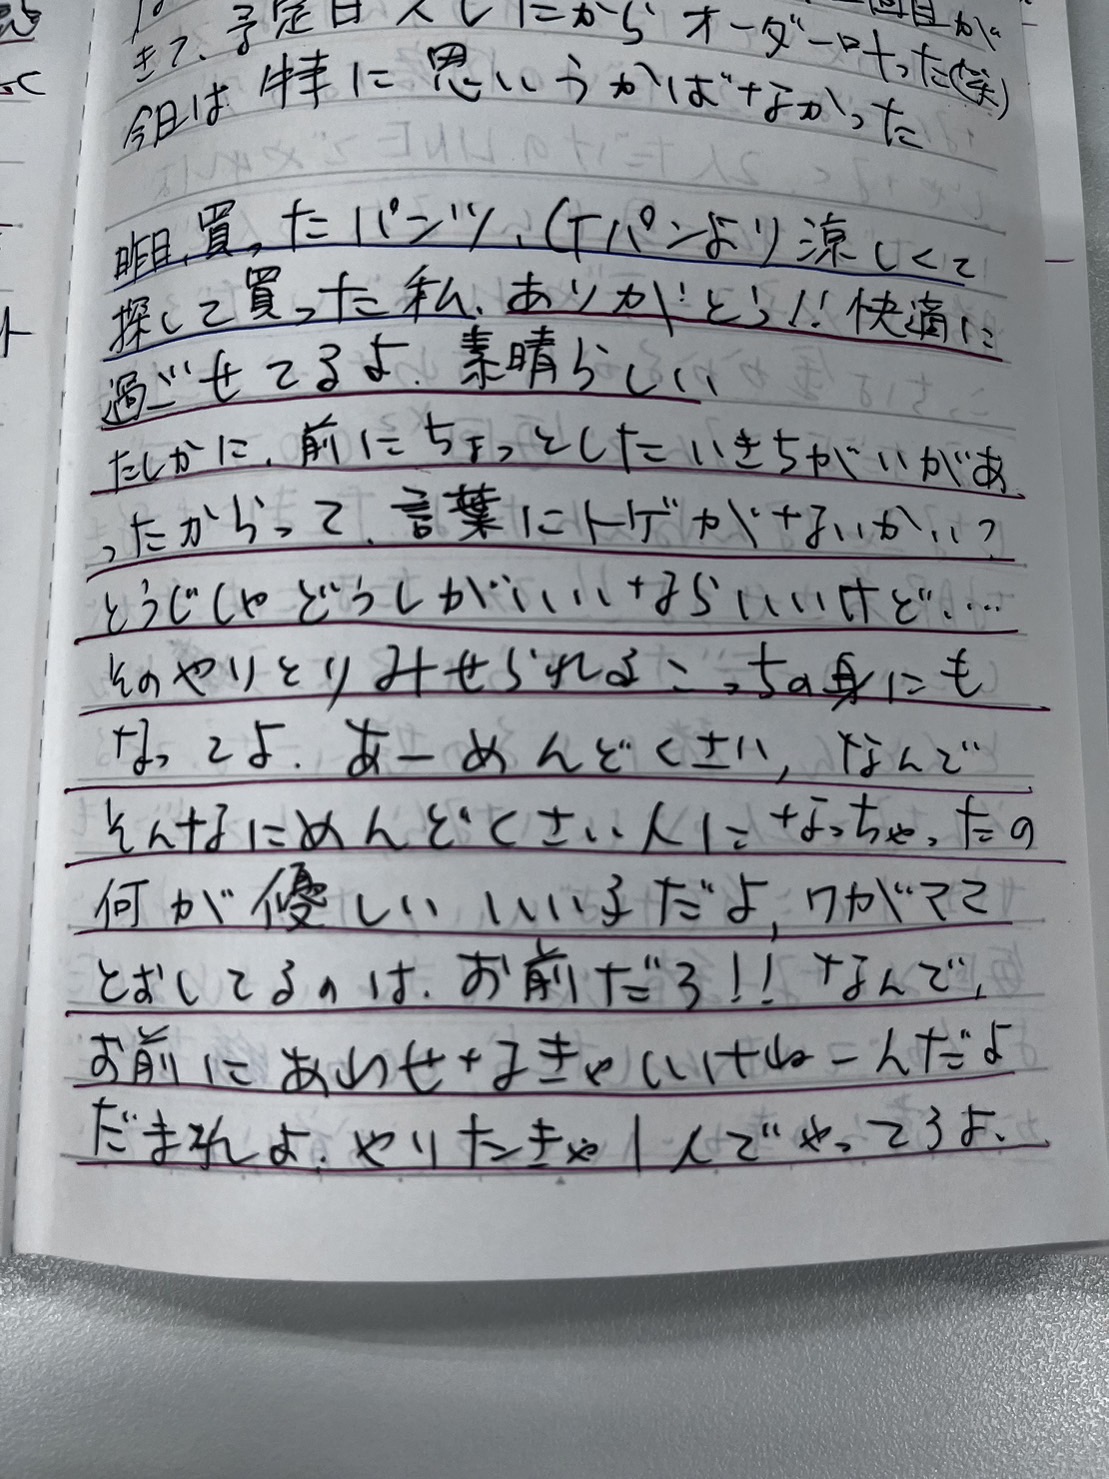 きて、予定日入したからオーダー叶った(笑)
今日は特に思いうかばなかった
昨日、買ったパンツ、(Tパンより涼しくて
探して買った私、ありがとう!!快適に
過ごせてるよ、素晴らしい
たしかに、前にちょっとしたいきちがいがあ
ったからって、言葉にトゲがないかい?
とうじしゃどうしがいいならいいけど、…
そのやりとりみせられるこっちの身にも
なってよ、あーめんどくさい、なんで
そんなにめんどくさい人になっちゃったの
何が優しいいい子だよ、ワガママ
とおしてるのは、お前だろ!!なんで、
お前にあわせなきゃいけねーんだよ
だまれよ、やりたきゃ1人でやってろよ、